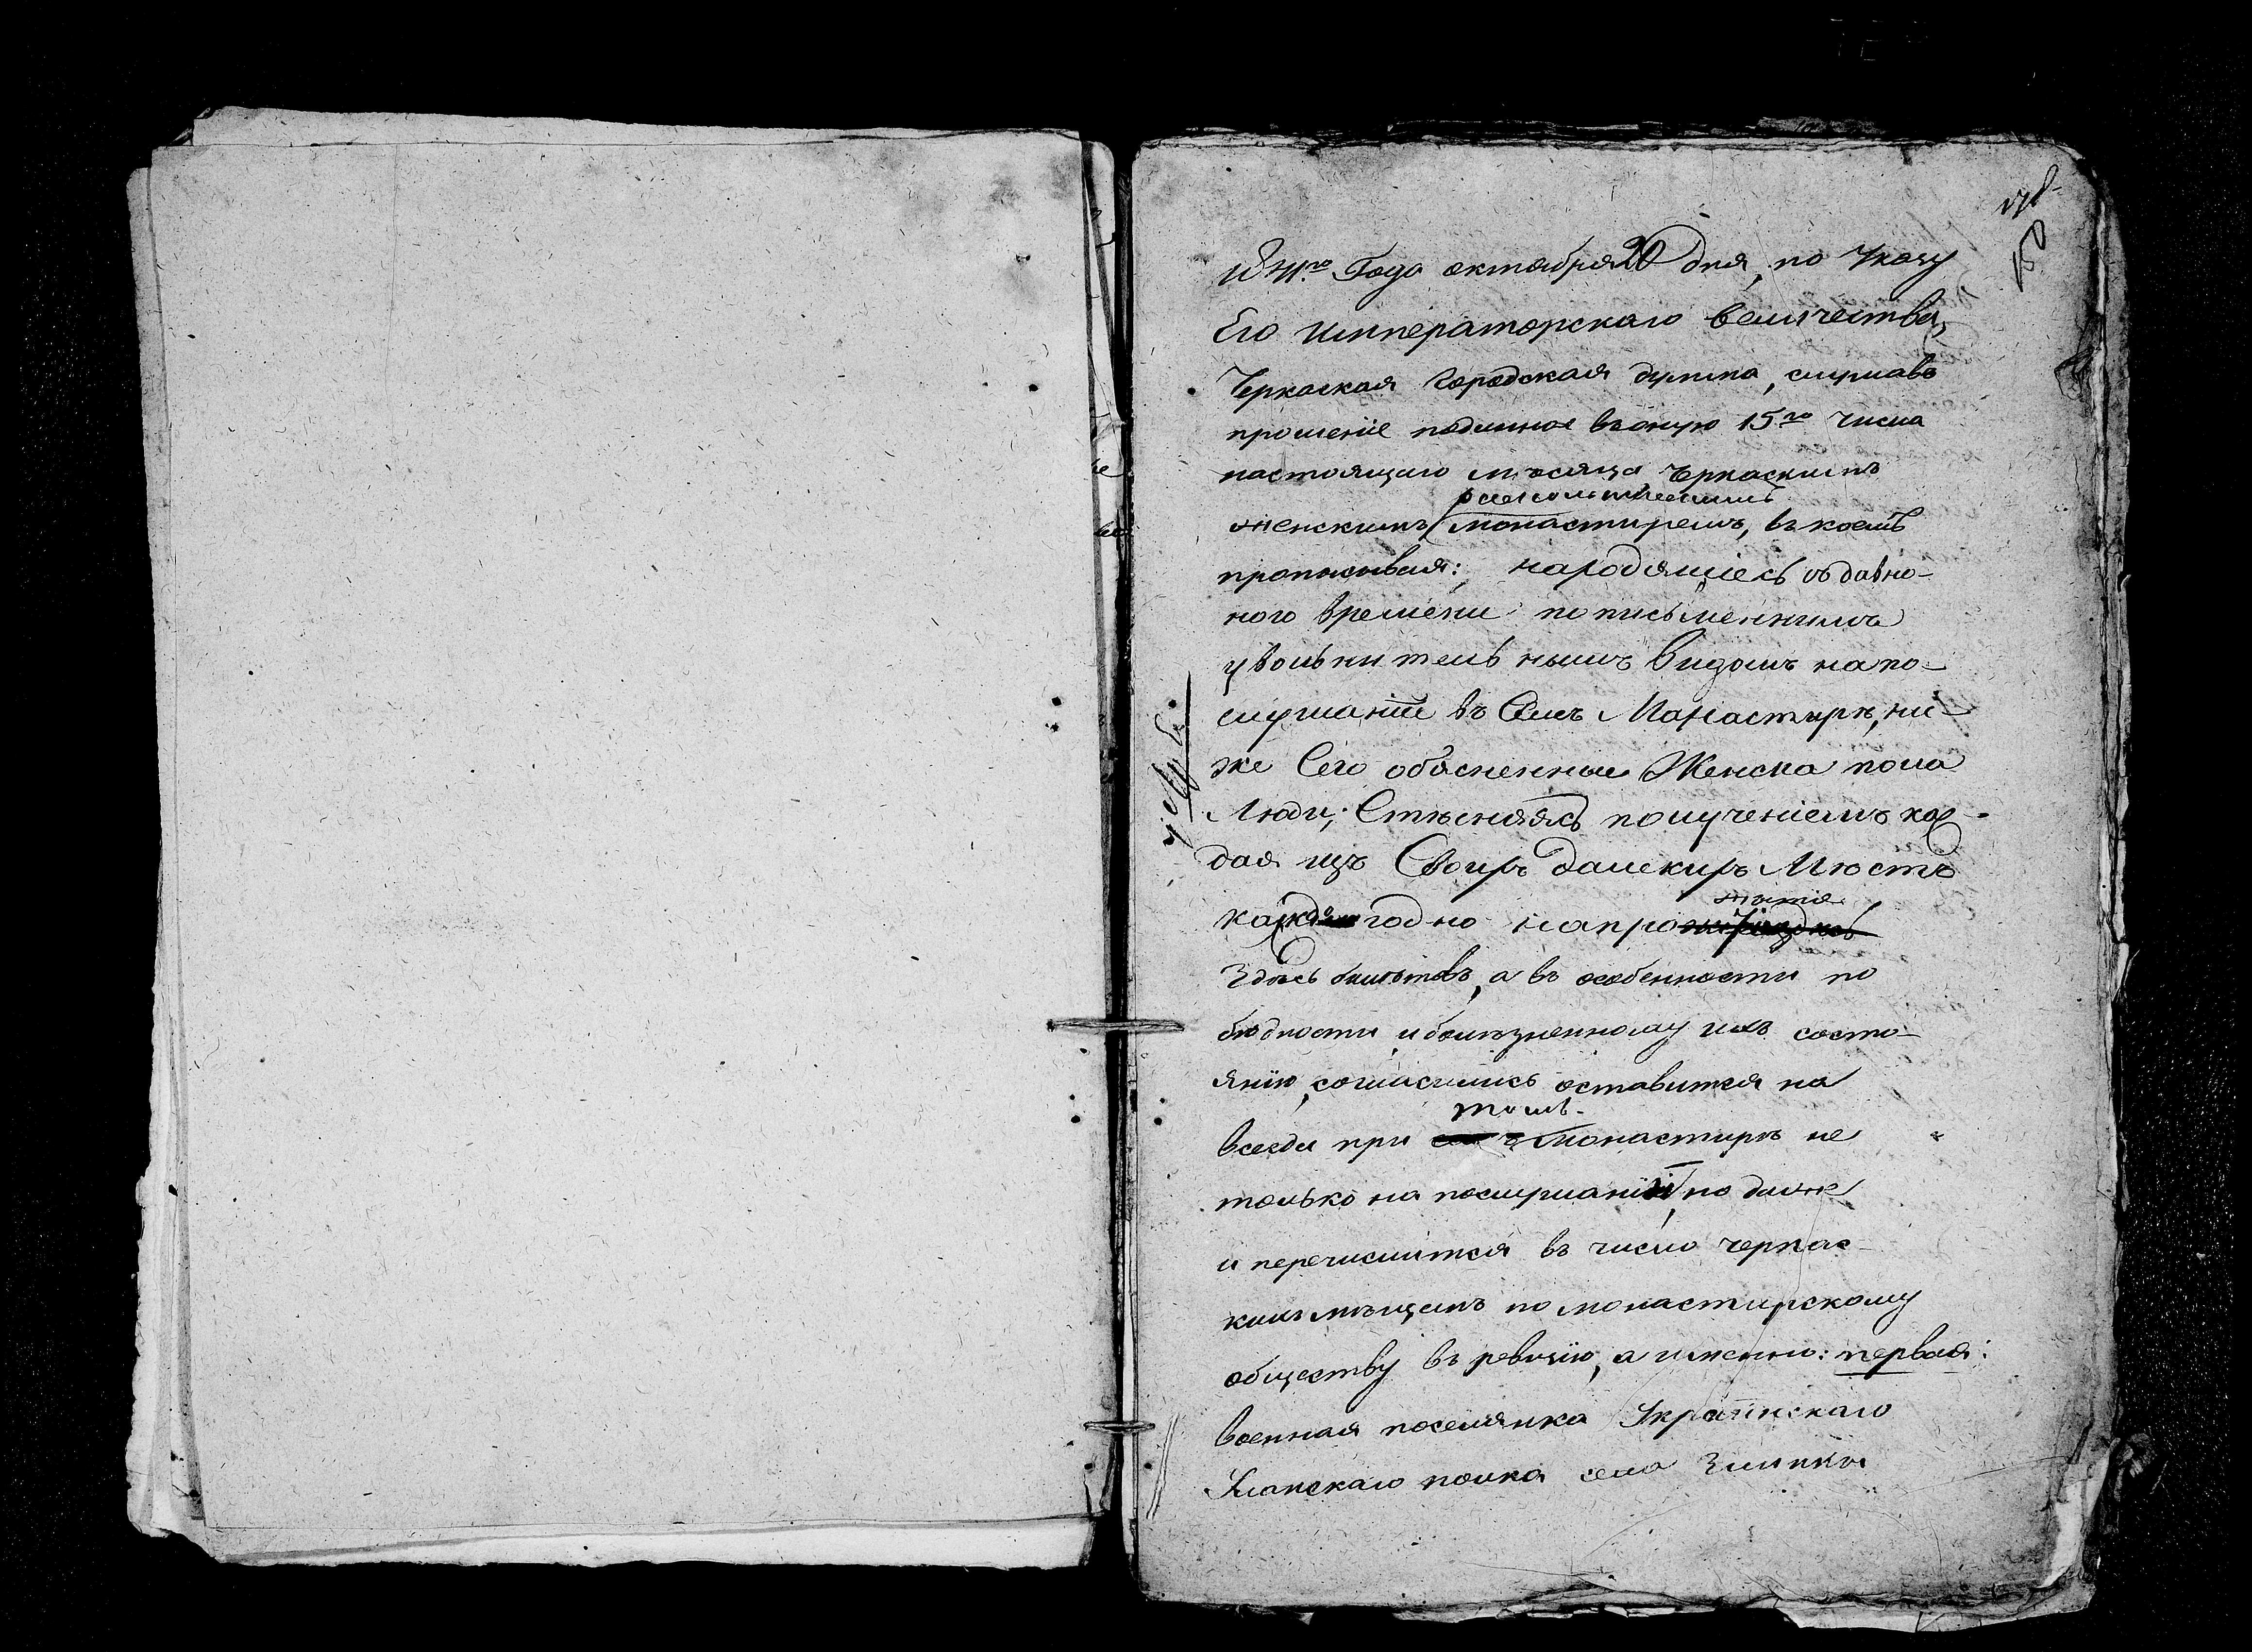 Года октября 20 дня, по Указу
Его Императорскаго Величества,
Черкаская Городская дума, слушавъ
прошеніе поданное въ оную 15го числа
настоящаго мѣсяца Черкаскимъ
раскольническимъ
женскимъ монастиремъ, въ коемъ
прописывая: находящіесь съ давно-
ного времени по письменнимъ
увольнительнымъ видамъ на по-
слушаніи въ Семъ Манастирѣ, ни-
же Сего обясненные Женска пола
Люди; Стѣсняясь полученіемъ каж-
дая изъ Своихъ далекихъ Мѣстъ
каждогодно на про
житіе
Здѣсь билетовъ, а въ особенности по
бѣдности и болѣзненному ихъ состо-
янію, согласились оставится на
томъ
всегда при монастирѣ не
только на послушаніи, но даже
и перечислится въ число черкас-
кихъ мѣщанъ по монастирскому
обществу въ ревизію, а имянно: первая:
военная поселянка Украинскаго
Уланскаго полка села